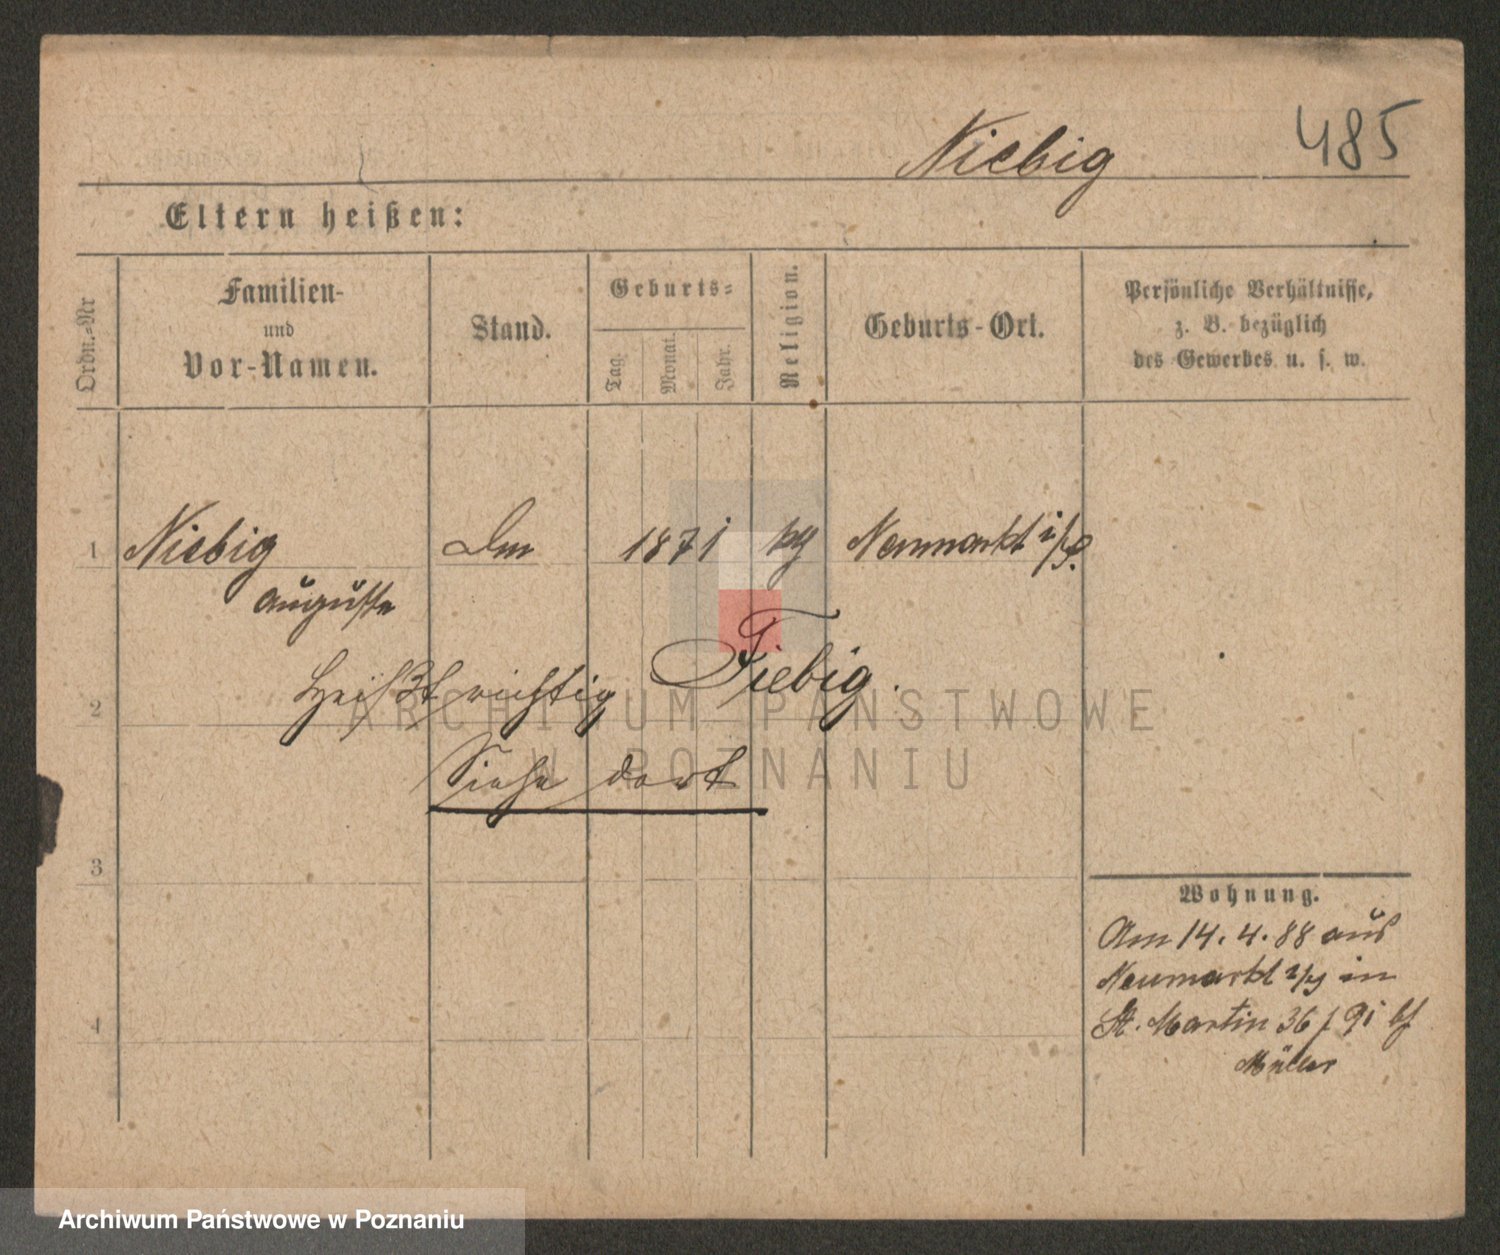 Niebig 485
Eltern heißen:
Ordn.=Nr
Familien-
und
Vor-Namen.
Stand.
Geburts=
Tag.
Monat.
Jahr.
Religion.
Geburts-Ort.
Persönliche Verhältnisse,
z. B. bezüglich
des Gewerbes u. s. w.
1 Niebig 1871 Neumarkt
Auguste
Heißt richtig Fiebig.
2
Siehe dort
3
Wohnung.
Am 14. 4. 88 aus
Neumarkt in
4 St. Martin 36
Müller
ARCHIWUM PAŃSTWOWE
W POZNANIU
Archiwum Państwowe w Poznaniu